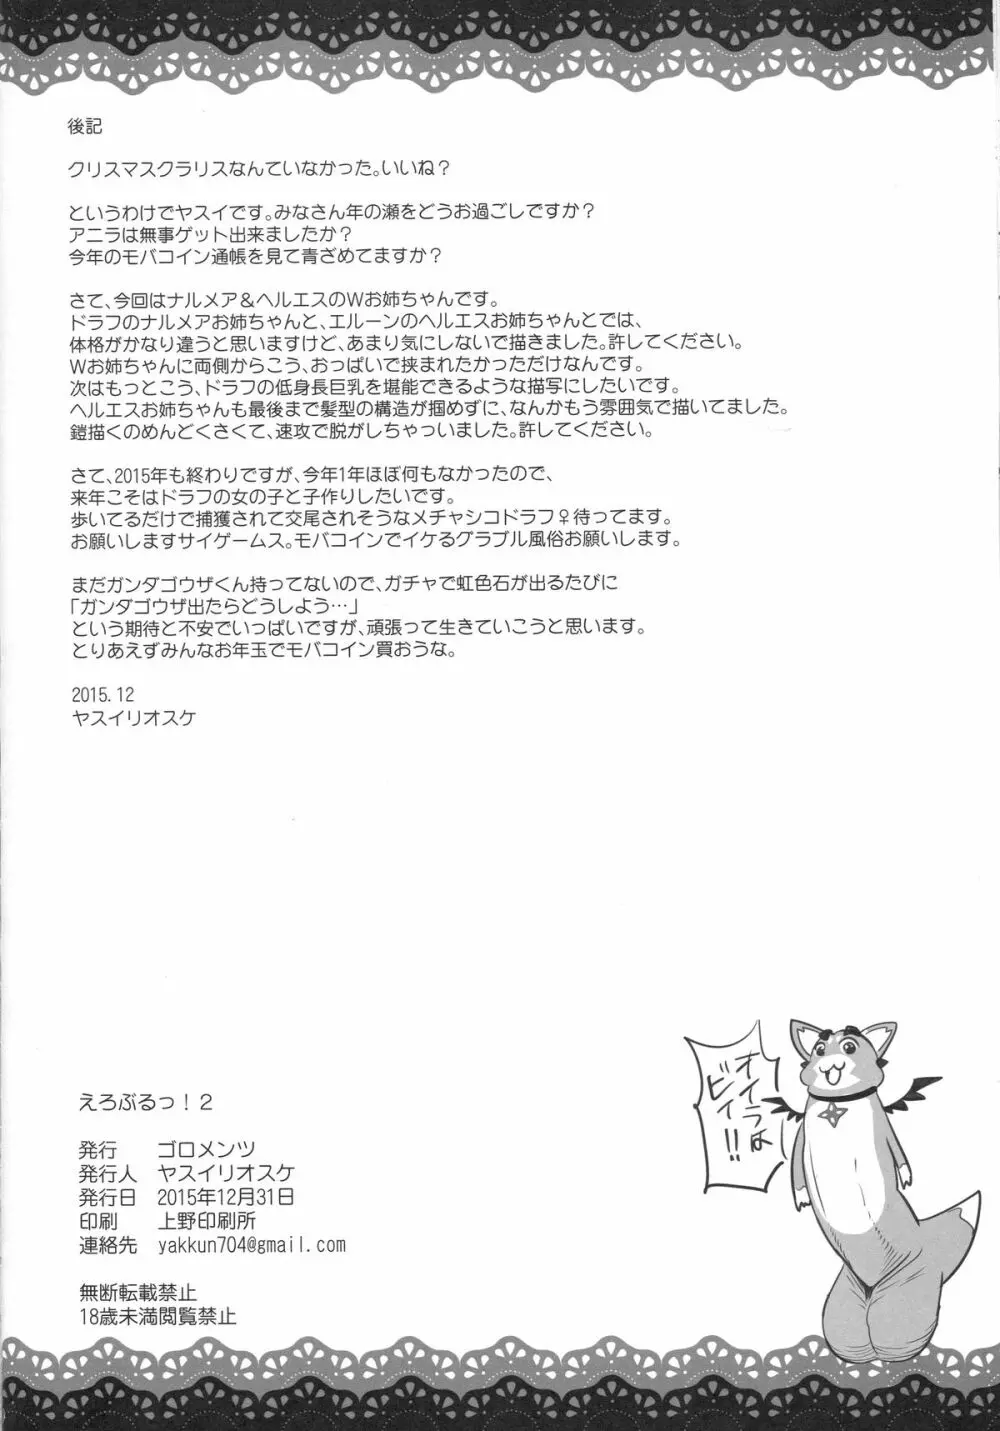 後記
クリスマスクラリスなんていなかった。いいね？
というわけでヤスイです。みなさん年の瀬をどうお過ごしですか？
アニラは無事ゲット出来ましたか？
今年のモバコイン通帳を見て青ざめてますか？
さて、今回はナルメア＆ヘルエスのWお姉ちゃんです。
ドラフのナルメアお姉ちゃんと、エルーンのヘルエスお姉ちゃんとでは、
体格がかなり違うと思いますけど、あまり気にしないで描きました。許してください。
Wお姉ちゃんに両側からこう、おっぱいで挟まれたかっただけなんです。
次はもっとこう、ドラフの低身長巨乳を堪能できるような描写にしたいです。
ヘルエスお姉ちゃんも最後まで髪型の構造が掴めずに、なんかもう雰囲気で描いてました。
鎧描くのめんどくさくて、速攻で脱がしちゃっいました。許してください。
さて、2015年も終わりですが、今年1年ほぼ何もなかったので、
来年こそはドラフの女の子と子作りしたいです。
歩いてるだけで捕獲されて交尾されそうなメチャシコドラフ♀待ってます。
お願いしますサイゲームス。モバコインでイケるグラブル風俗お願いします。
まだガンダゴウザくん持ってないので、ガチャで虹色石が出るたびに
「ガンダゴウザ出たらどうしよう…」
という期待と不安でいっぱいですが、頑張って生きていこうと思います。
とりあえずみんなお年玉でモバコイン買おうな。
2015.12
ヤスイリオスケ
オイラは
ビィ!!
えろぶるっ！2
発行 ゴロメンツ
発行人 ヤスイリオスケ
発行日 2015年12月31日
印刷 上野印刷所
連絡先 yakkun704@gmail.com
無断転載禁止
18歳未満閲覧禁止